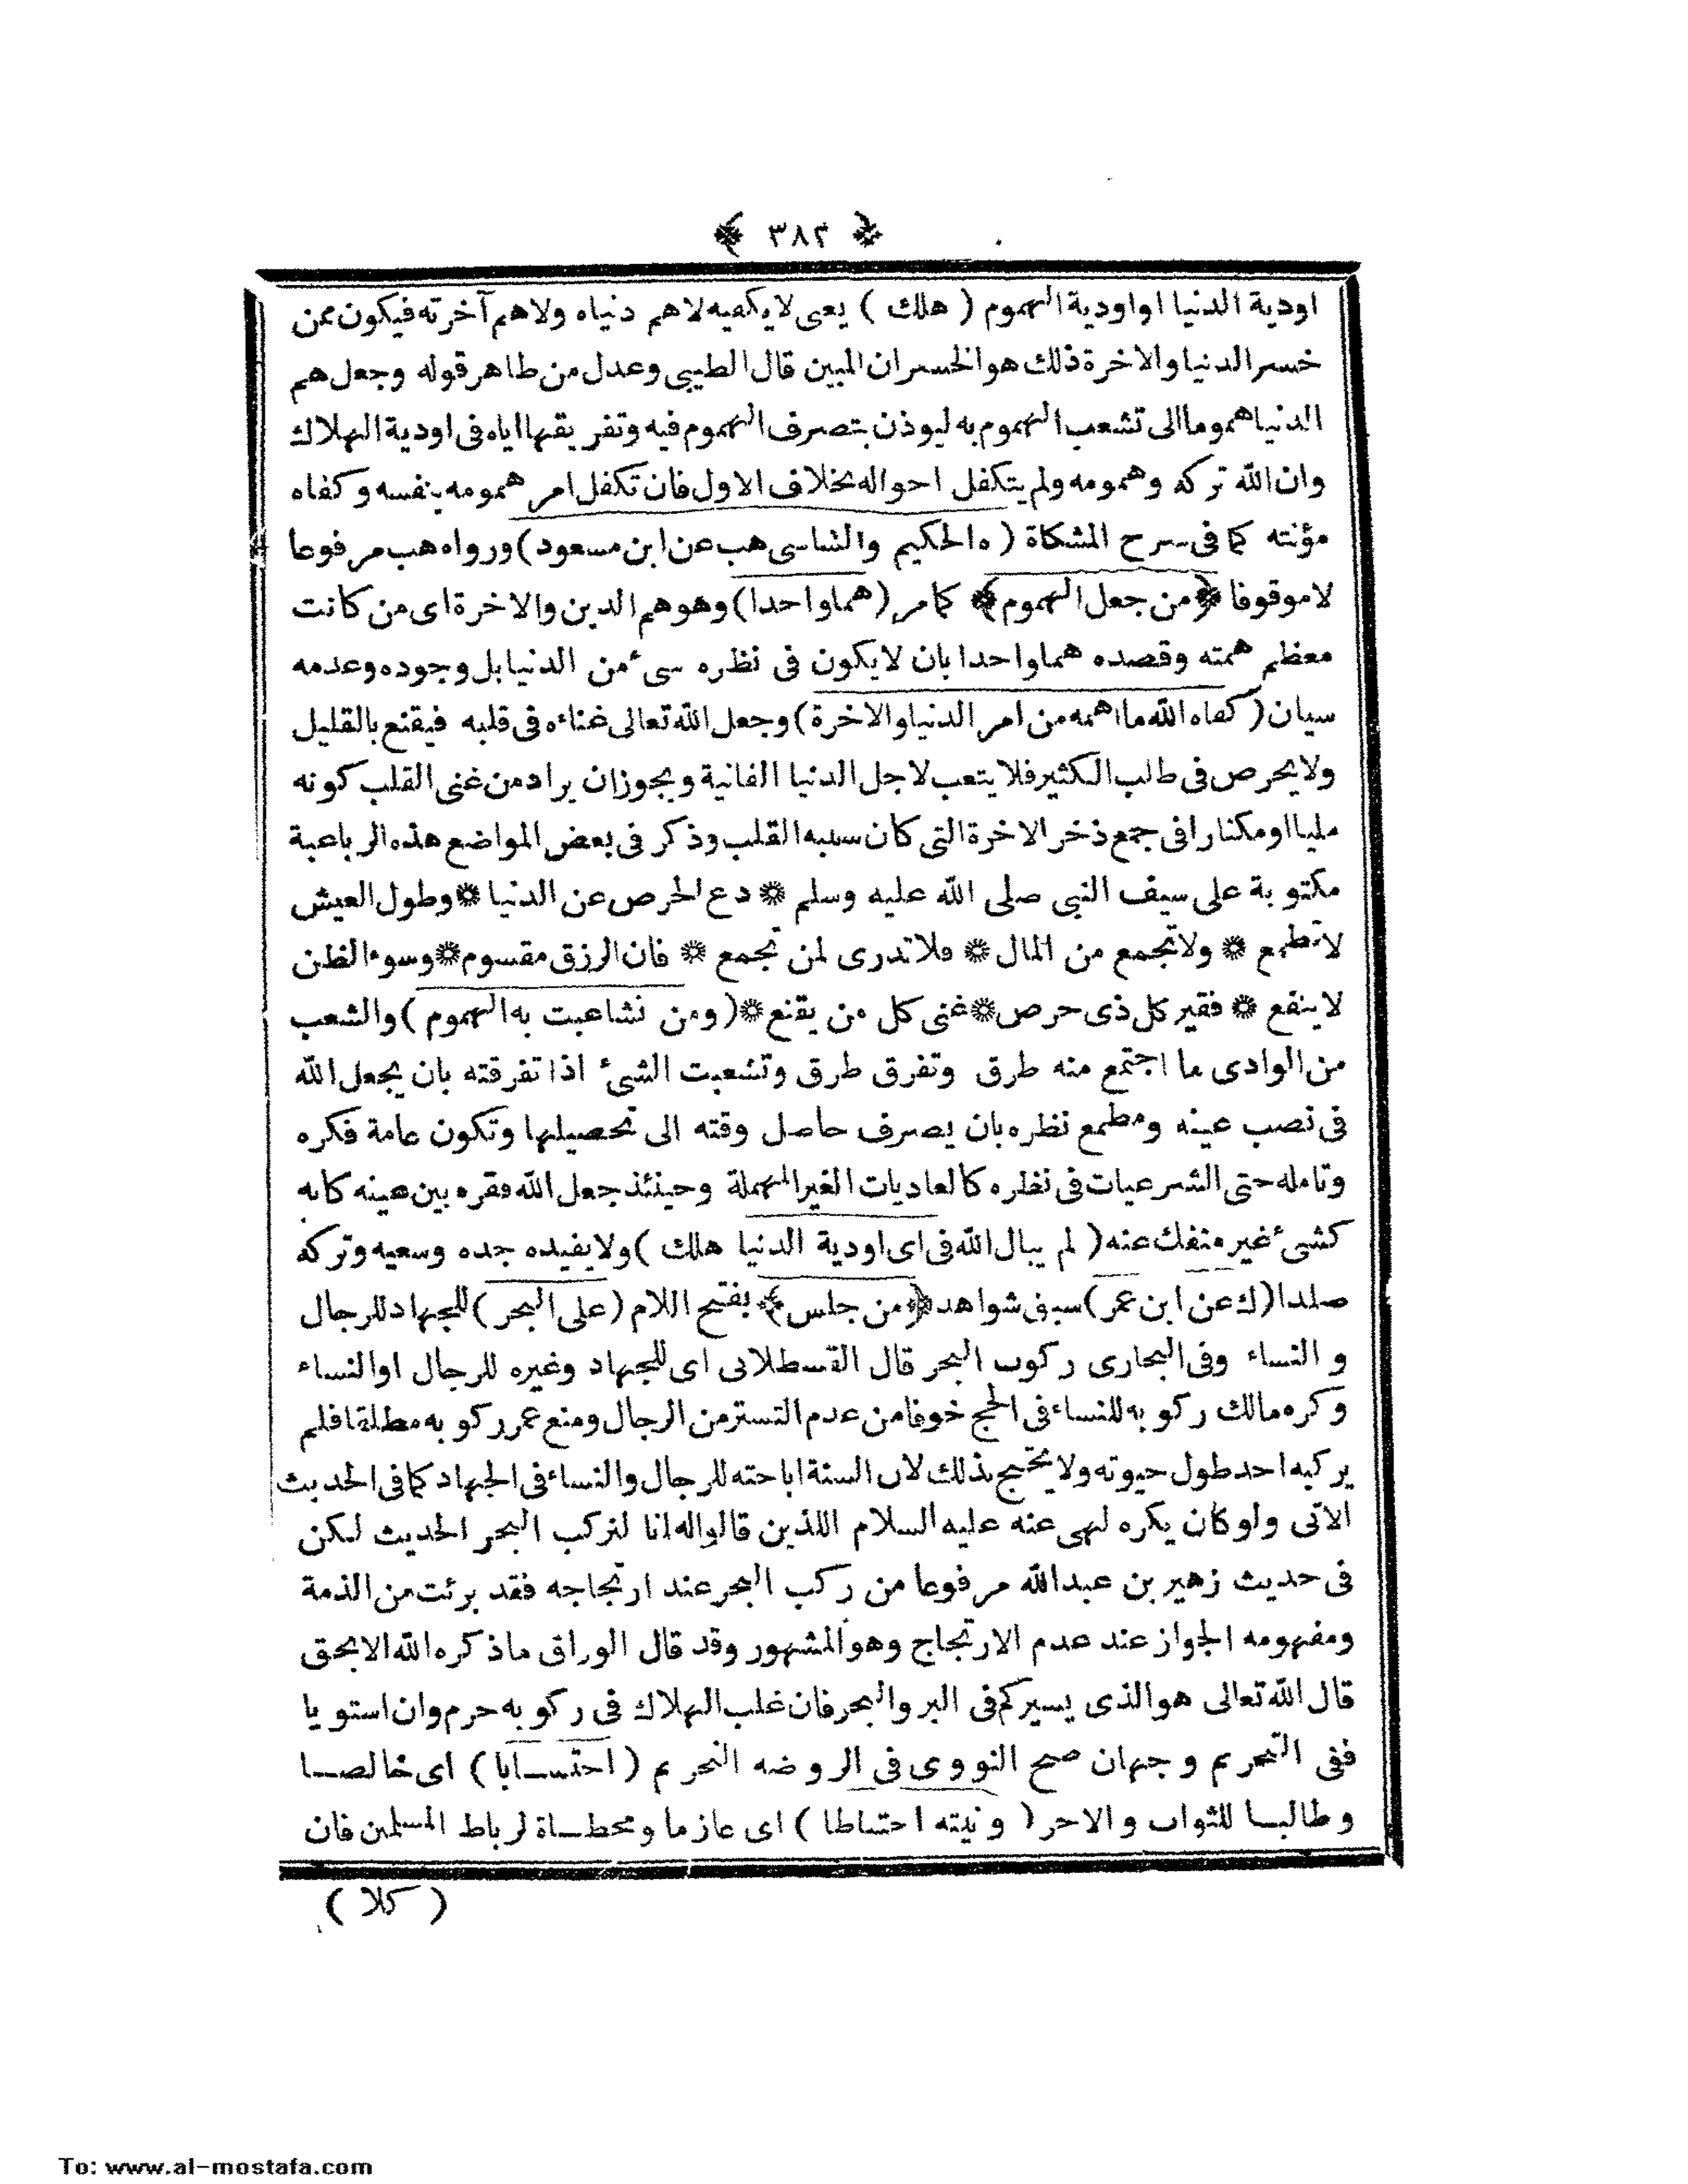 ﴿ ٣٨٢ ﴾
اودية الدنيا او اودية الهموم ( هلك ) يعى لايكفيه لاهم دنياه ولاهم آخرته فيكون ممن
خسر الدنيا والاخرة ذلك هو الخسران المبين قال الطيبى وعدل من طاهر قوله وجعل هم
الدنيا هموما الى تشعب الهموم به ليوذن بتصرف الهموم فيه وتفريقها اياه فى اودية الهلاك
وان الله تركه وهمومه ولم يتكفل احواله بخلاف الاول فان تكفل امر همومه بنفسه وكفاه
مؤنته كما فى سرح المشكاة ( ه الحكيم والشاسى هب عن ابن مسعود ) ورواه هب مرفوعا
لاموقوفا ﴿ من جعل الهموم ﴾ كمامر ( هما واحدا ) وهو هم الدين والاخرة اى من كانت
معظم همته وقصده هما واحدا بان لايكون فى نظره سىء من الدنيا بل وجوده وعدمه
سيان ( كفاه الله ما اهمه من امر الدنيا والاخرة ) وجعل الله تعالى غناءه فى قلبه فيقنع بالقليل
ولايحرص فى طالب الكثير فلا يتعب لاجل الدنيا الفانية ويجوز ان يراد من غنى القلب كونه
مليا او مكنارا فى جمع ذخر الاخرة التى كان سببه القلب وذكر فى بعض المواضع هذه الرباعية
مكتوبة على سيف النبى صلى الله عليه وسلم ❊ دع الحرص عن الدنيا ❊ وطول العيش
لاتطمع ❊ ولاتجمع من المال ❊ فلاتدرى لمن تجمع ❊ فان الرزق مقسوم ❊ وسوء الظن
لاينفع ❊ فقير كل ذى حرص ❊ غنى كل من يقنع ❊ ( ومن تشاعبت به الهموم ) والشعب
من الوادى ما اجتمع منه طرق وتفرق طرق وتشعبت الشىء اذا تفرقته بان يجعل الله
فى نصب عينه ومطمع نظره بان يصرف حاصل وقته الى تحصيلها وتكون عامة فكره
وتامله حتى الشرعيات فى نظره كالعاديات الغير المهملة وحينئذ جعل الله فقره بين عينه كانه
كشىء غير منفك عنه ( لم يبال الله فى اى اودية الدنيا هلك ) ولايفيده جده وسعيه وتركه
صلدا ( ك عن ابن عمر ) سبق شواهد ﴿ من جلس ﴾ بفتح اللام ( على البحر ) للجهاد للرجال
و النساء وفى البخارى ركوب البحر قال القسطلانى اى للجهاد وغيره للرجال او النساء
وكره مالك ركوبه للنساء فى الحج خوفا من عدم التستر من الرجال ومنع عمر ركوبه مطلقا فلم
يركبه احد طول حيوته ولا يحتج بذلك لان السنة اباحته للرجال والنساء فى الجهاد كما فى الحديث
الاتى ولو كان يكره لنهى عنه عليه السلام اللذين قالوا له انا لنركب البحر الحديث لكن
فى حديث زهير بن عبدالله مرفوعا من ركب البحر عند ارتجاجه فقد برئت من الذمة
ومفهومه الجواز عند عدم الارتجاج وهو المشهور وقد قال الوراق ماذكره الله الا بحق
قال الله تعالى هو الذى يسيركم فى البر والبحر فان غلب الهلاك فى ركوبه حرم وان استويا
ففى التحريم وجهان صحح النووى فى الروضه التحريم ( احتسـابا ) اى خالصـا
وطالبـا للثواب والاحر ( ونيته احتىاطا ) اى عازما ومحطـاة لرباط المسلمين فان
( كلا )
To: www.al-mostafa.com